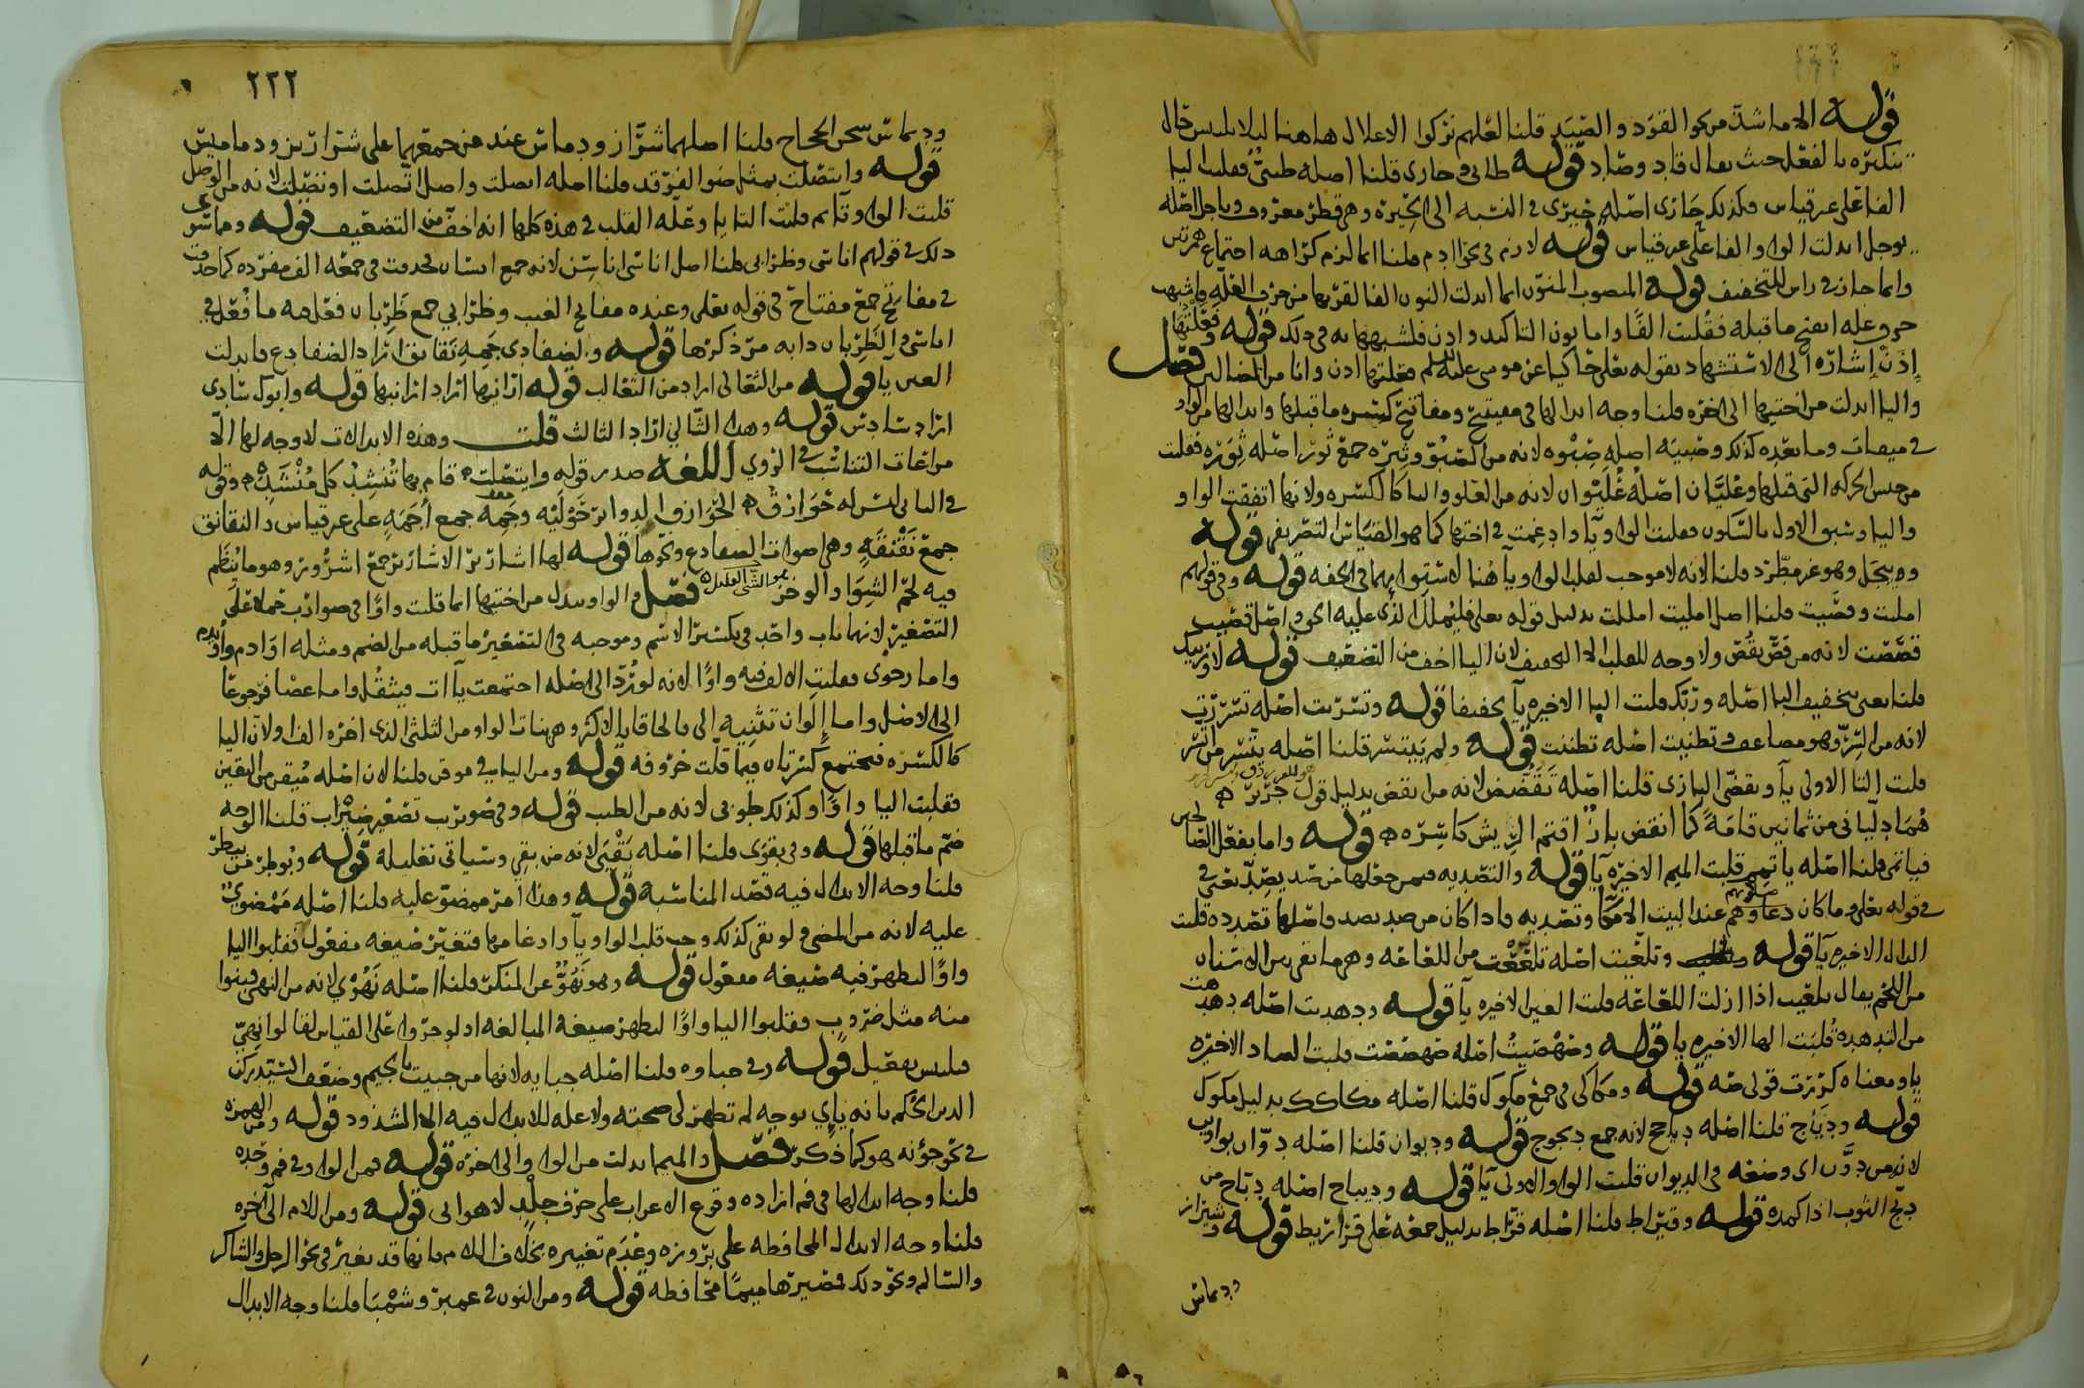 قوله الا ما شذ من نحو القَوَد والصَّيَد قلنا لعلهم تركوا الاعلال هاهنا ليلا يلبس حال
تنكيره بالفعل حيث يقال قاد وصاد قوله طائي وحاري قلنا اصله طيئي فقلبت اليا
الفا على غير قياس وكذلك حاري اصله حيري في النسبه الى الحيره وهي قطر معروف وياجل اصله
يوجل ابدلت الواو الفا على غير قياس قوله لازم في نحو ادم قلنا انما لزم كراهه اجتماع همزتين
وانما جاز في راس للتخفيف قوله المنصوب المنون انما ابدلت النون الفا لقربها من حرف العله واشبهت
حروف عله انفتح ما قبله فقلبت الفًا واما نون التاكيد واذن فلشبهها به في ذلك قوله فعلتها
إِذَنْ اشاره الى الاستشهاد بقوله تعلى حاكيا عن موسى عليه السلم فعلتها اذن وانا من الضالين فصل
واليا ابدلت من اختيها الى اخره قلنا وجه ابدالها في مفيتيح ومفاتيح كسره ما قبلها وابدالها من الواو
في ميقات وما بعده كذلك وصبيه اصله صِبْوه لانه من الصبوّ وثِيَره جمع ثور اصله ثِوَره فقلبت
من جنس الحركه التي قبلها وعليَّان اصله عُلَيْوان لانه من العلو واليا كالكسره ولانها اتفقت الواو
واليا وسبق الاول بالسكون فقلبت الواو يآ وادغمت في اختها كما هو القياس التصريفي قوله
وه ييجل وهو غير مطّرد قلنا لانه لا موجب لقلب الواو يآ هنا لاستوايهما في الخفه قوله وفي قولهم
امليت وقصّيت قلنا اصل امليت امللت بدليل قوله تعلى فليملل الذي عليه الحق واصل قصيت
قصّصت لانه من قصّ يقُصّ ولا وجه للقلب الا التخفيف لان اليا اخف من التضعيف قوله
قلنا يعني بتخفيف البا اصله وربّك قلبت البا الاخيره يآ تخفيفا قوله وتسرّيت اصله تسرّرت
لانه من السِّرّ وهو مضاعف وتظنيت اصله تظننت قوله
قلبت التا الاولى يآ وتقضّي البازي قلنا اصله تَقَضُّض لانه من انقض بدليل قول جرير
هُمَا دلّياني من ثمانين قامةً كما انقض باز اقتم الريش كاسره قوله واما
قلنا اصله ياتمم قلبت الميم الاخيره يآ قوله والتصديه فيمن جعلها من صد يصد يعني في
قوله تعلى وما كان صلوتهم عند البيت الا مكآ وتصديه فاذا كان من صد يصد فاصلها تصدده قلبت
الدال الاخيره يآ قوله وتلعّيت اصله تلعّعت من اللعاعه وهو ما بقي بين الاسنان
من اللحم يقال تلعيت اذا ازلت اللعاعه قلبت العين الاخيره يآ قوله ودهديت اصله دهدهت
من الدهدهه قُلِبَت الها الاخيره يا قوله وصهْصيتُ اصله صهصهت
يا ومعناه كرّرت قولي صَه قوله ومكاكي في جمع مكوك قلنا اصله مكاكك بدليل مكوك
قوله ودياج قلنا اصله دياجج لانه جمع ديجوج قوله وديوان قلنا اصله دِوّان
لانه من دوّن اي وضعه في الديوان قلبت الواو الاولى يآ قوله وديباج اصله دِبّاج من
دبّج الثوب اذا قوله وقيراط قلنا اصله قرّاط بدليل جمعه على قراريط قوله وشيراز
وديماس
٢٢٢
وديماس سجن الحجاج قلنا اصلهما شرّاز ودماس عند من جمعهما على شراريز ودماميس
قوله وايتصلت بمثل ضوا الفرقد قلنا اصله اتصلت واصل اتّصلت اوتصلت لانه من الوصل
قلبت الواو تآ ثم قلبت التا يا وعلّه القلب في هذه كلها انه اخف من التضعيف قوله وما سوى
ذلك في قولهم اناسي وظرابي قلنا اصل اناسي اناسين لانه جمع انسان فحذفت في جمعه الف مفرده كما حذفت
في مفاتح جمع مفتاح في قوله تعلى وعنده مفاتح الغيب وظرابي جمع ظَرِبان فعل به ما فُعل في
اناسي والظَرِبان دابه مرّ ذكرها قوله ولضفادي جمه نقانق اراد الضفادع فابدلت
العين يآ قوله من الثعالي اراد من الثعالب قوله ارانيها اراد ارانبها قوله وابوك سادي
اراد سادس قوله وهذا الثالي اراد الثالث قلت وهذه الابدالات لا وجه لها الا
مراعات التناسُب في الروي اللغه صدر قوله وايتصلت قام بها تُنْشِدُ كل مُنْشَدِ وقوله
في البا ليس له حَوَازِقُ الحَوازق الدواير حَوْليه وجِمُّه جمع أجَمَهِ على غير قياس والنقانق
جمع نَقْنَقَهِ وهي اصوات الضفادع ونحوها قوله لها اشارير الاشارير جمع اشروره وهو ما يُنظم
فيه لحم الشوا والوخز هو الشي القليل فصل والواو تبدل من اختيها انما قلبت واوًا في ضوارب حملا على
التصغير لانهما باب واحد في تكسير الاسم وموجبه في التصغير ما قبله من الضم ومثله اوادم واويدم
واما رحوي فقلبت الالف فيه واوًا لانه لو رُدّ الى اصله اجتمعت يآ ات فيثقل واما عصا فرجوعًا
الى الاصل واما إلَوان تثنيه الى فالحاقا بالاكثر وهو بنات الواو من الثلثي الذي اخره الف ولان اليا
كالكسره فتجتمع كسرتان فيما قلّت حروفه قوله ومن اليا في موقن قلنا لان اصله مُيقن من اليقين
فقلبت اليا واوًا وكذلك طوبى لانه من الطيب قوله وفي ضويرب تصغير ضيْراب قلنا الوجه
ضم ما قبلها قوله وفي بقوى قلنا اصله بَقْيَى لانه من بقي وسياتي تعليله قوله وبُوطر من بيطر
قلنا وجه الابدال فيه قصد المناسبه قوله وهذا امر ممضوّ عليه قلنا اصله مَمْضوي
عليه لانه من المضي ولو بقي كذلك وجب قلب الواو يآ وادغامها فتغيّر صيغه مفعول فقلبوا اليا
واوًا لتظهر فيه صيغه مفعول قوله وهو نَهُوٌّ عن المنكر قلنا اصله نَهُوْي لانه من النهي فبنوا
منه مثل ضروب فقلبوا اليا واوًا لتظهر صيغه المبالغه اذ لو جروا على القياس لقالوا نهيّ
فيلبس بفعيل قوله وفي جباوه قلنا اصله جبايه لانها من جبيت بالجيم وضعف السيد ركن
الدين الحكم بانه يآي بوجه لم تظهر لي صحته ولا عله للابدال فيه الا الشذوذ قوله ومن الهمزه
في نحو جؤنه هو كما ذكر فصل والميم ابدلت من الواو الى اخره قوله فمن الواو في فم وحده
قلنا وجه ابدالها في فم اراده وقوع الاعراب على حرف جلْد لا هوايي قوله ومن اللام الى اخره
قلنا وجه الابدال المحافظه على بروزه وعَدَم تغييره بخلاف اللام فانها قد تغير في نحو الرجل والشاكر
والسالم ونحو ذلك فصيرتها ميمًا محافظه قوله ومن النون في عمبر وشمْبا قلنا وجه الابدال